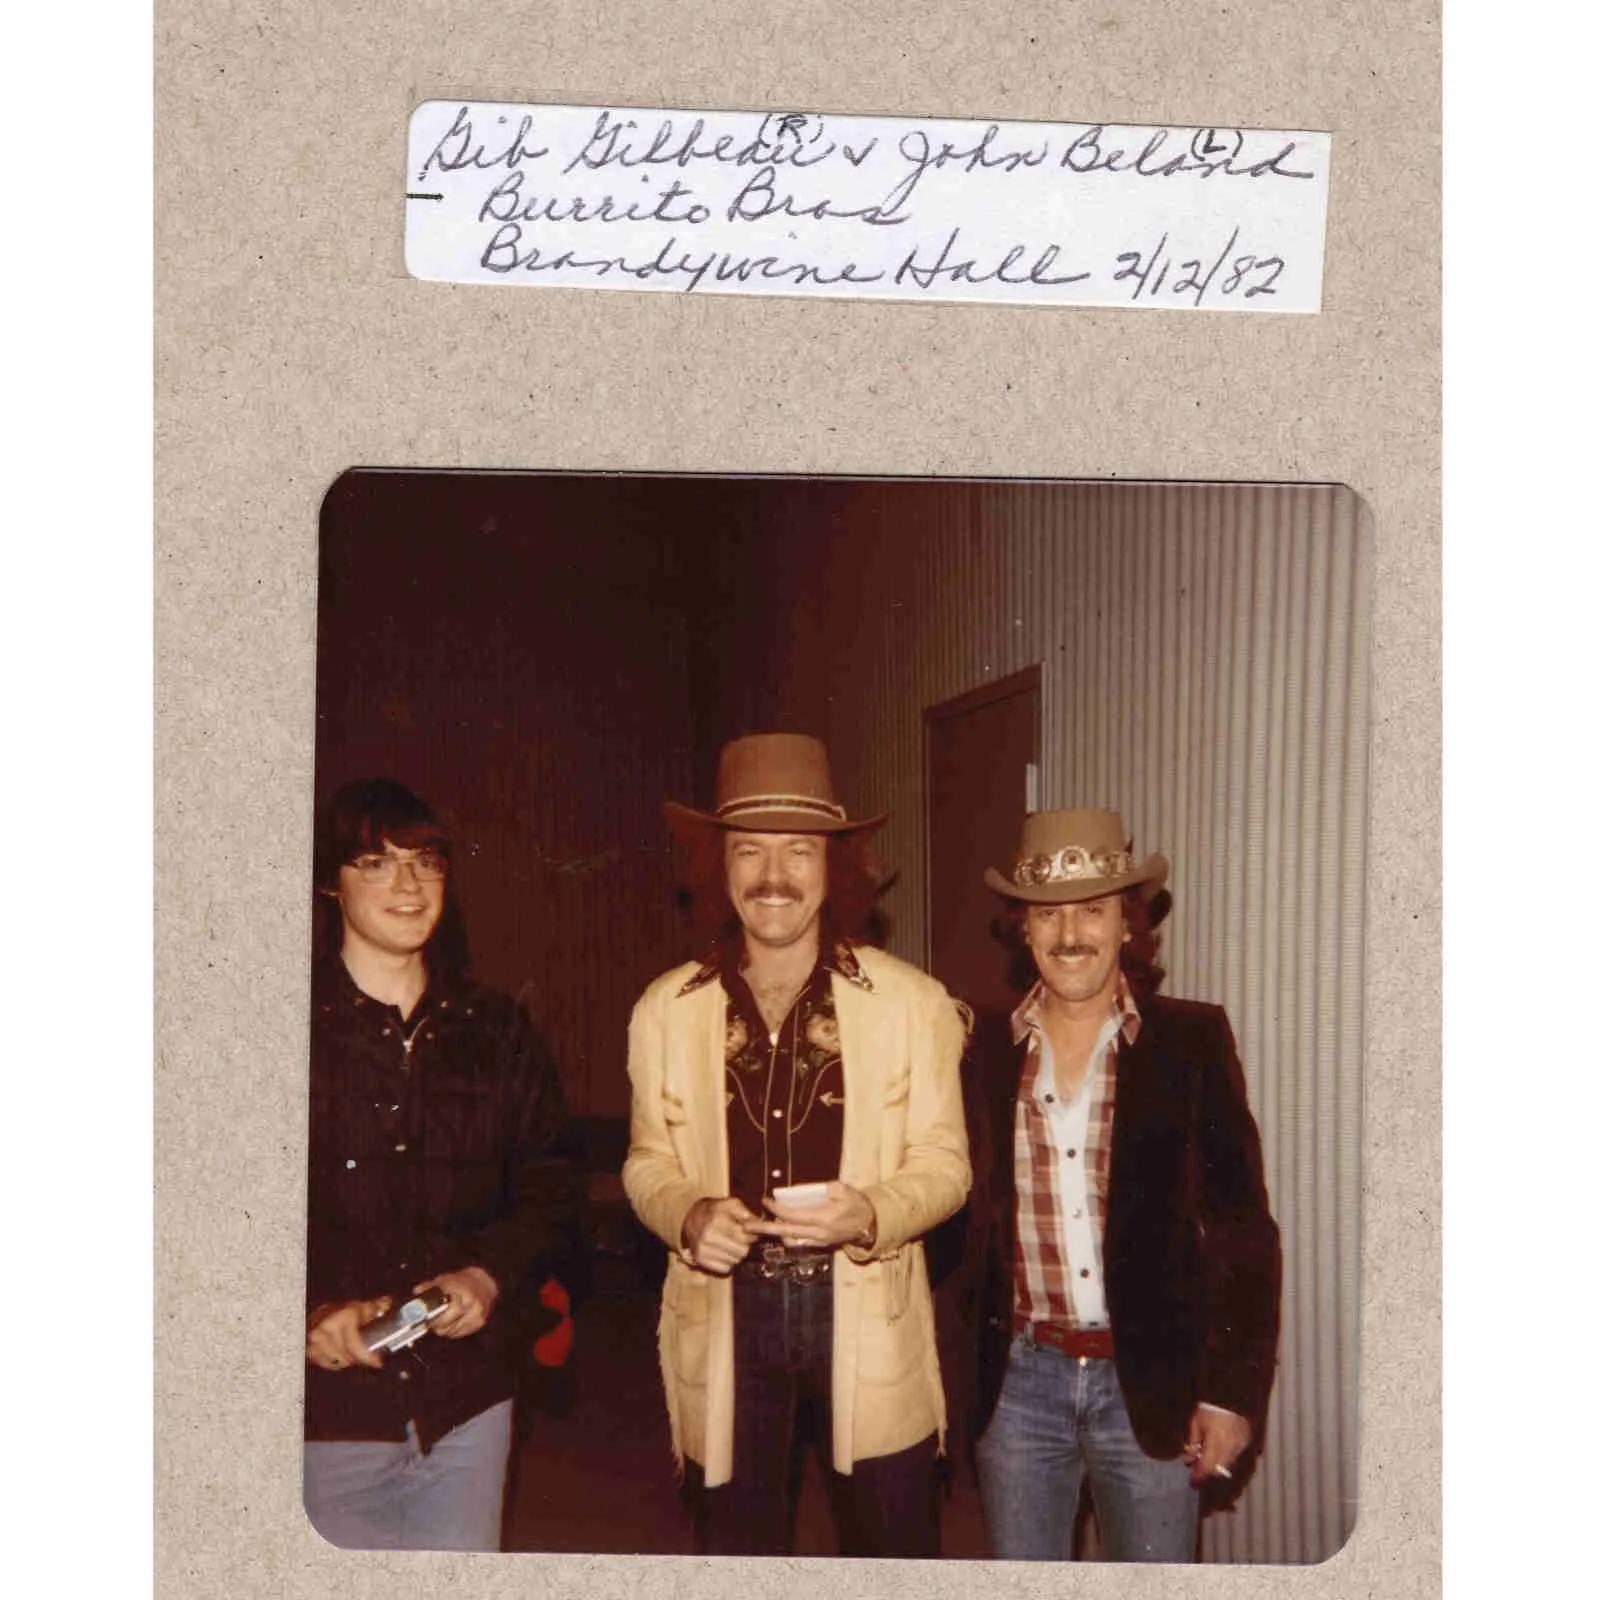 Gib Gilbeau (R) & John Beland (L)
Burrito Bros
Brandywine Hall 2/12/82